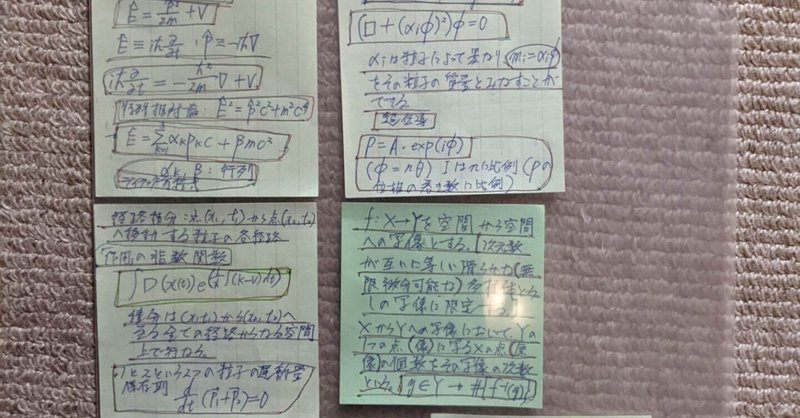 Ê = p̂²/2m + V
Ê ≡ iħ ∂/∂t , p̂ ≡ -iħ∇
iħ ∂/∂t = - ħ²/2m ∇ + V
特殊相対論: Ê² = p̂²c² + m²c⁴
Ê = Σ αₖpₖc + βmc²
αₖ, β : 行列
(□ + (αᵢφ)²)φ = 0
αᵢは粒子によって異なり、mᵢ = αᵢφ
をその粒子の質量とみなすことが
できる。
超伝導
P = A・exp(iφ)
(φ = nθ) Iはnに比例(Pの
位相の巻き数に比例)
経路積分:点(x₁, t₁)から点(x₂, t₂)
へ移動する粒子の各経路
作用の指数関数
∫D(x(t))e(i/ħ ∫(k-V)dt)
積分は(x₁,t₁)から(x₂,t₂)へ
至る全ての経路からなる空間
上で行わる
1とスという2つの粒子の運動量
保存則
d/dt (p⃗₁+p⃗₂) = 0
f: X→Yを空間から空間
への写像とする。次元数
が互いに等しい滑らかな(無
限微分可能な)多様体
しの写像に限定する。
XからYへの写像において、Yの
1つの点(像)に写るXの点(原
像)の個数をその写像の次数
という。 y∈Y → #{f⁻¹(y)}